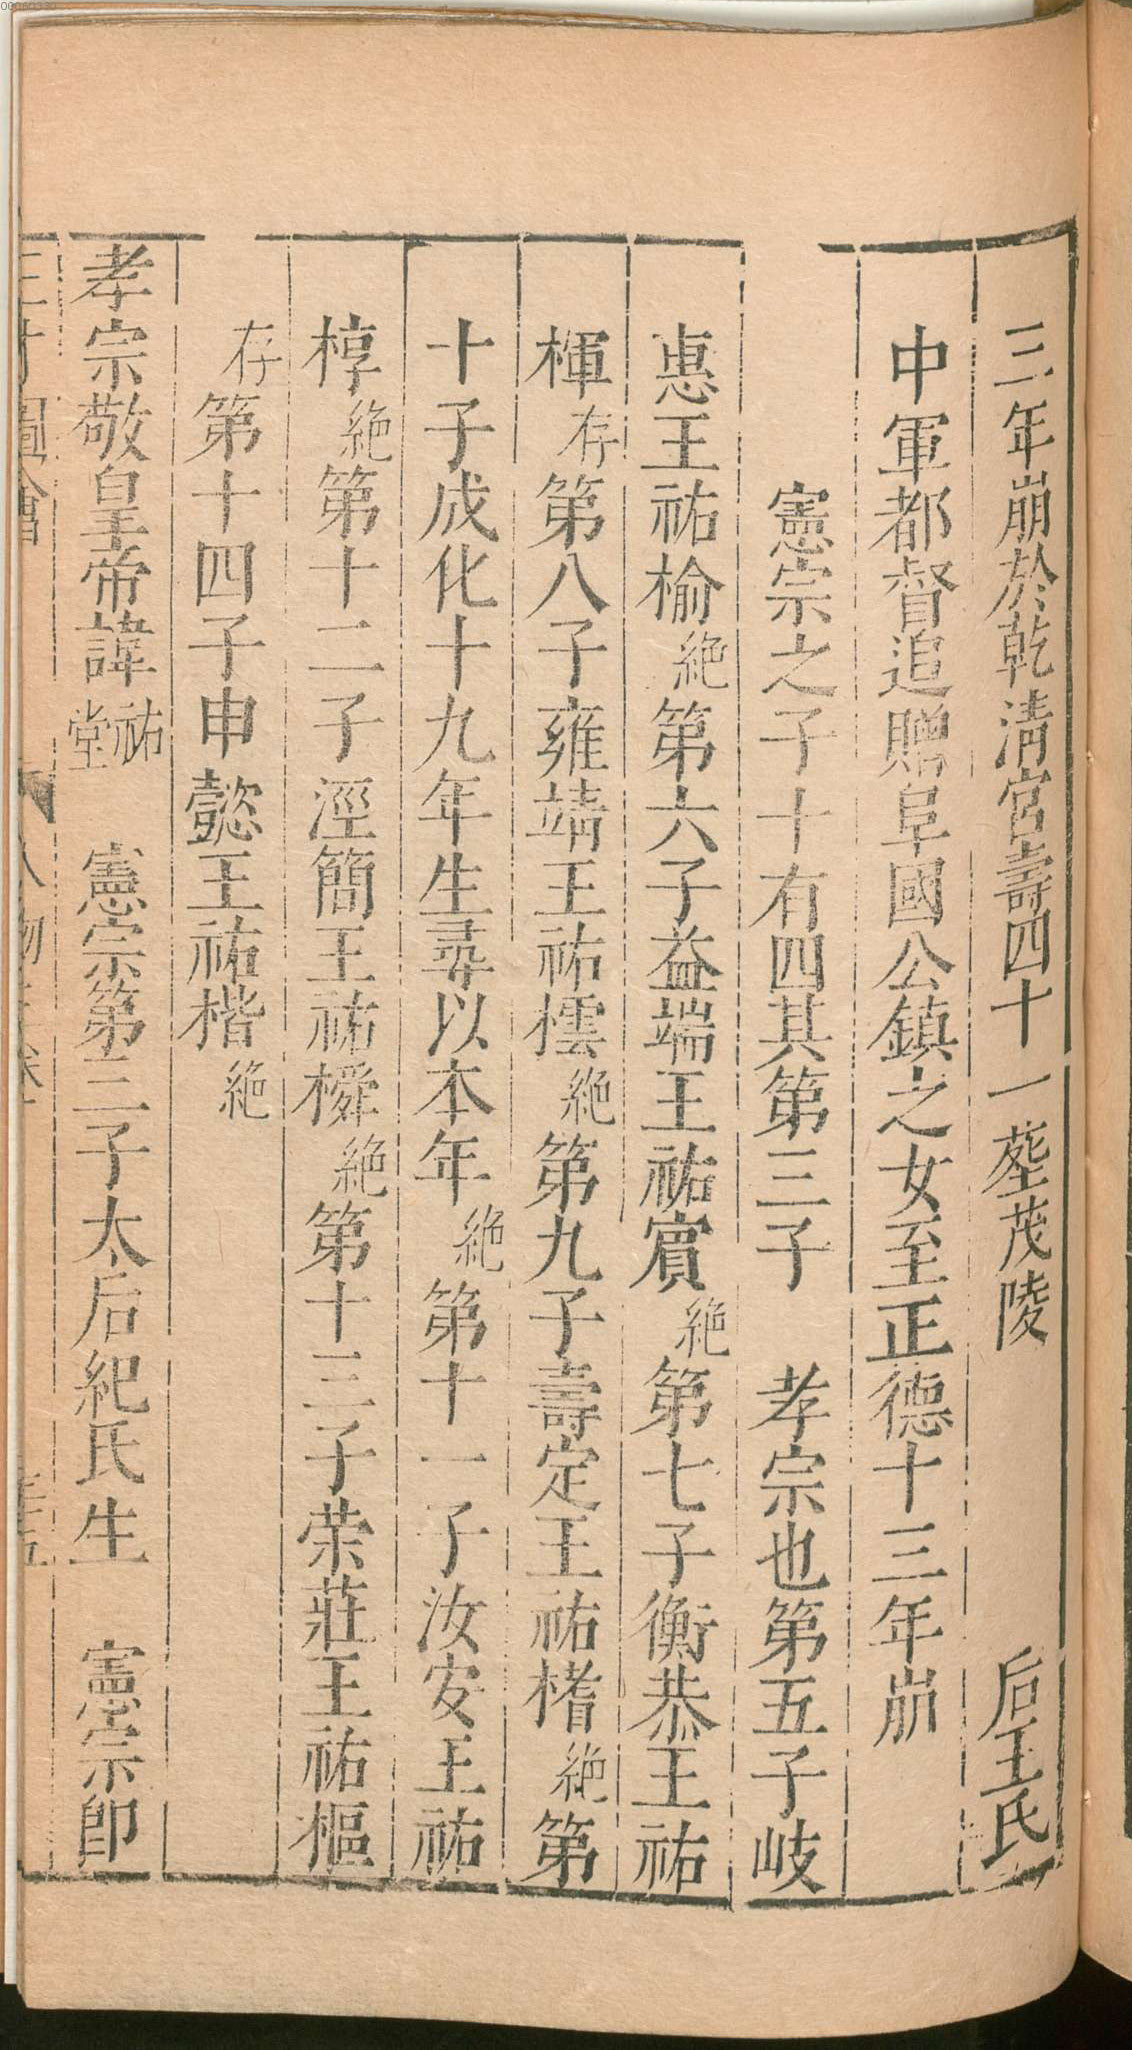 三年崩於乾清宮壽四十一塟茂陵　后王氏
中軍都督追贈阜國公鎮之女至正德十三年崩
憲宗之子十有四其第三子　孝宗也第五子岐
惠王祐棆絶第六子益端王祐賓絶第七子衡恭王祐
楎存第八子雍靖王祐橒絶第九子壽定王祐榰絶第
十子成化十九年生尋以本年絶第十一子汝安王祐
椁絶第十二子涇簡王祐橓絶第十三子荣莊王祐樞
存第十四子申懿王祐楷絶
孝宗敬皇帝諱祐堂　憲宗第三子太后紀氏生　憲宗卽
三才圖會　人物三卷　三十五
00060330